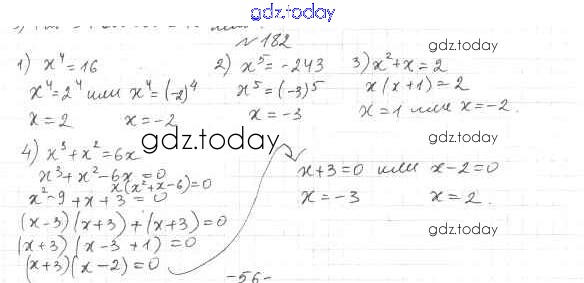 gdz.today
№ 182
1) x⁴ = 16
x⁴ = 2⁴ или x⁴ = (-2)⁴
x = 2 x = -2
2) x⁵ = -243
x⁵ = (-3)⁵
x = -3
gdz.today
3) x² + x = 2
x (x + 1) = 2
x = 1 или x = -2.
gdz.today
gdz.today
4) x³ + x² = 6x
x³ + x² - 6x = 0
x(x² + x - 6) = 0
x² - 9 + x + 3 = 0
(x - 3)(x + 3) + (x + 3) = 0
(x + 3)(x - 3 + 1) = 0
(x + 3)(x - 2) = 0
x + 3 = 0 или x - 2 = 0
x = -3 x = 2.
gdz.today
- 56 -
gdz.today